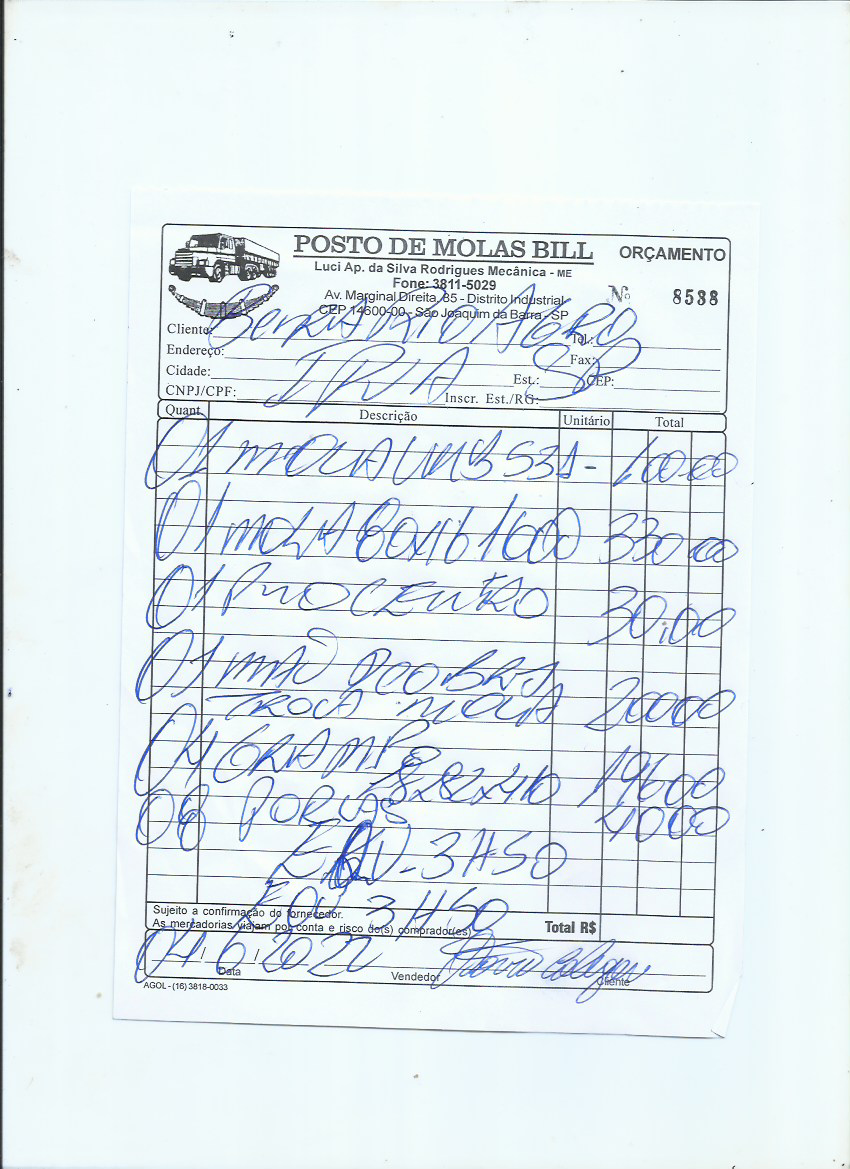 POSTO DE MOLAS BILL
ORÇAMENTO
Luci Ap. da Silva Rodrigues Mecânica - ME
Fone: 3811-5029
Av. Marginal Direita, 85 - Distrito Industrial
Nº 8538
CEP 14600-00 - São Joaquim da Barra - SP
Cliente: AGRO Tel.:
Endereço: Fax:
Cidade: Est.: SP CEP:
CNPJ/CPF: Inscr. Est./RG:
Quant. Descrição Unitário Total
01 MOLA 100 00
01 MOLA 80X16 1600 330 00
01 PINO CENTRO 30,00
01 MÃO DE OBRA
TROCA MOLA 200 00
04 GRAMPO
196 00
08 PORCAS 40 00
Sujeito a confirmação do fornecedor.
As mercadorias viajam por conta e risco do(s) comprador(es)
Total R$
04 / 6 / 2022
Data
Vendedor
Cliente
AGOL - (16) 3818-0033